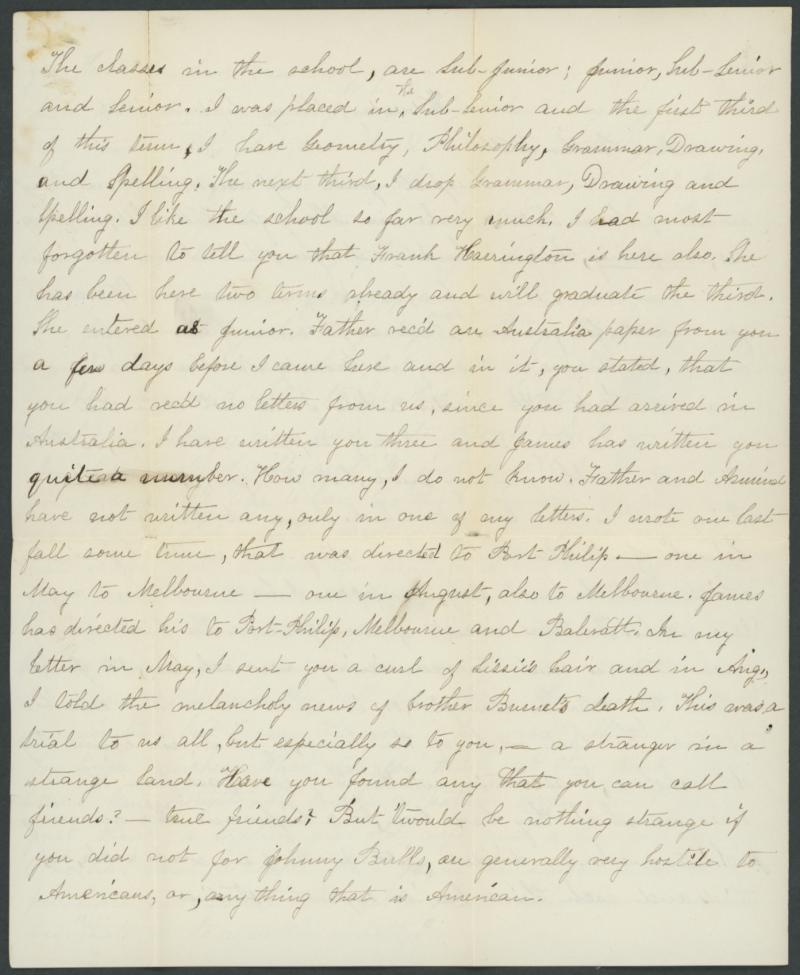 The classes in the school, are Sub-Junior; Junior, Sub-Senior
and Senior. I was placed in the Sub-Senior and the first third
of this term, I have Geometry, Philosophy, Grammar, Drawing,
and Spelling. The next third, I drop Grammar, Drawing and
Spelling. I like the school so far very much. I had most
forgotten to tell you that Frank Harrington is here also. She
has been here two terms already and will graduate the third.
She entered as Junior. Father rec'd an Australia paper from you
a few days before I came here and in it, you stated, that
you had rec'd no letters from us, since you had arrived in
Australia. I have written you three and James has written you
quite a number. How many, I do not know. Father and
have not written any, only in one of my letters. I wrote one last
fall some time, that was directed to Port Philip — one in
May to Melbourne — one in August, also to Melbourne. James
has directed his to Port-Philip, Melbourne and Balaratt. In my
letter in May, I sent you a curl of Lissie's hair and in Aug.,
I told the melancholy news of brother Burnet's death. This was a
trial to us all, but especially so to you, — a stranger in a
strange land. Have you found any that you can call
friends? — true friends? But 'twould be nothing strange if
you did not for Johnny Bulls, are generally very hostile to
Americans, or, any thing that is American.